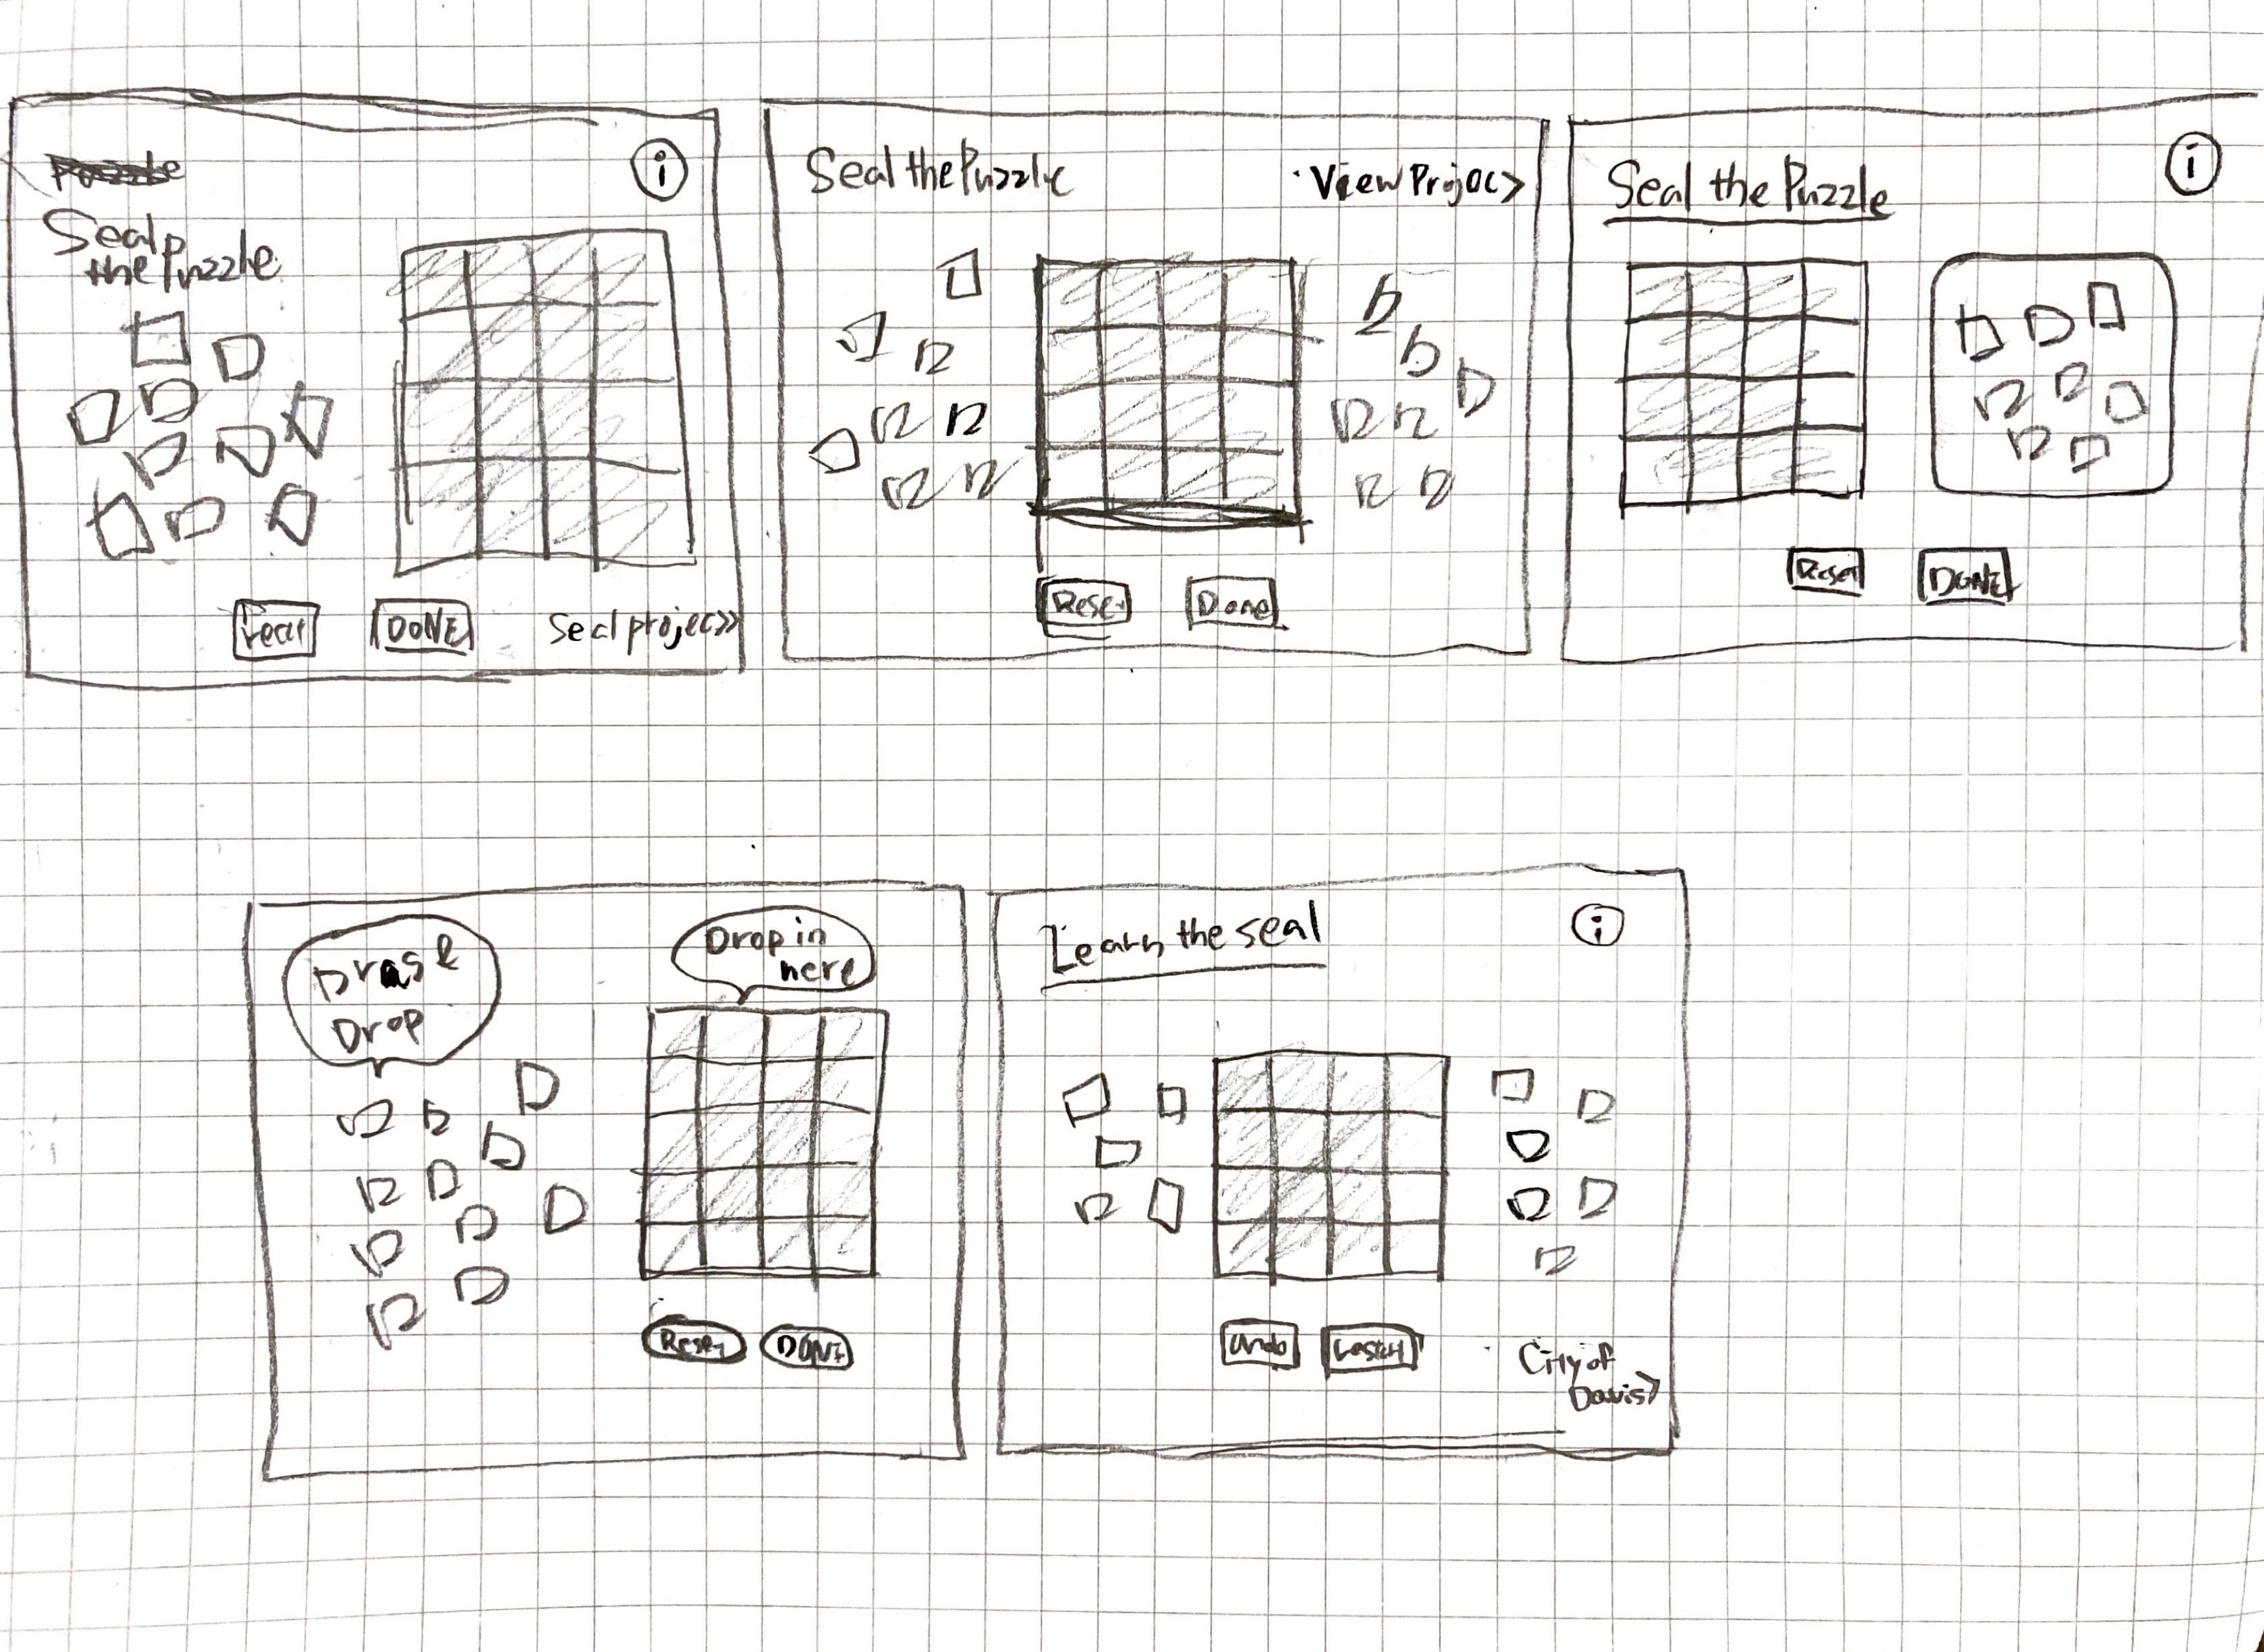 Puzzle
Seal
the Puzzle
i
DONE
Seal projec>>
Seal the Puzzle
View Projec>
Reset
Done
Seal the Puzzle
i
Reset
DONE
Drag &
Drop
Drop in
here
Reset
DONE
Learn the seal
i
Undo
City of
Davis>